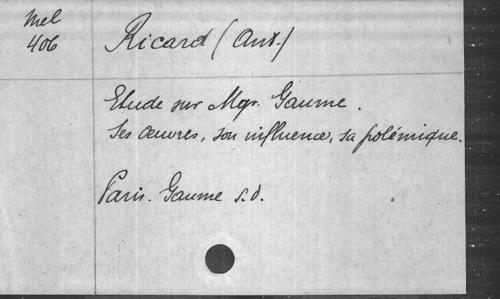 Mel
406
Ricard (Ant.)
Etude sur Mgr. Gaume.
Ses œuvres, son influence, sa polémique.
Paris. Gaume s.d.